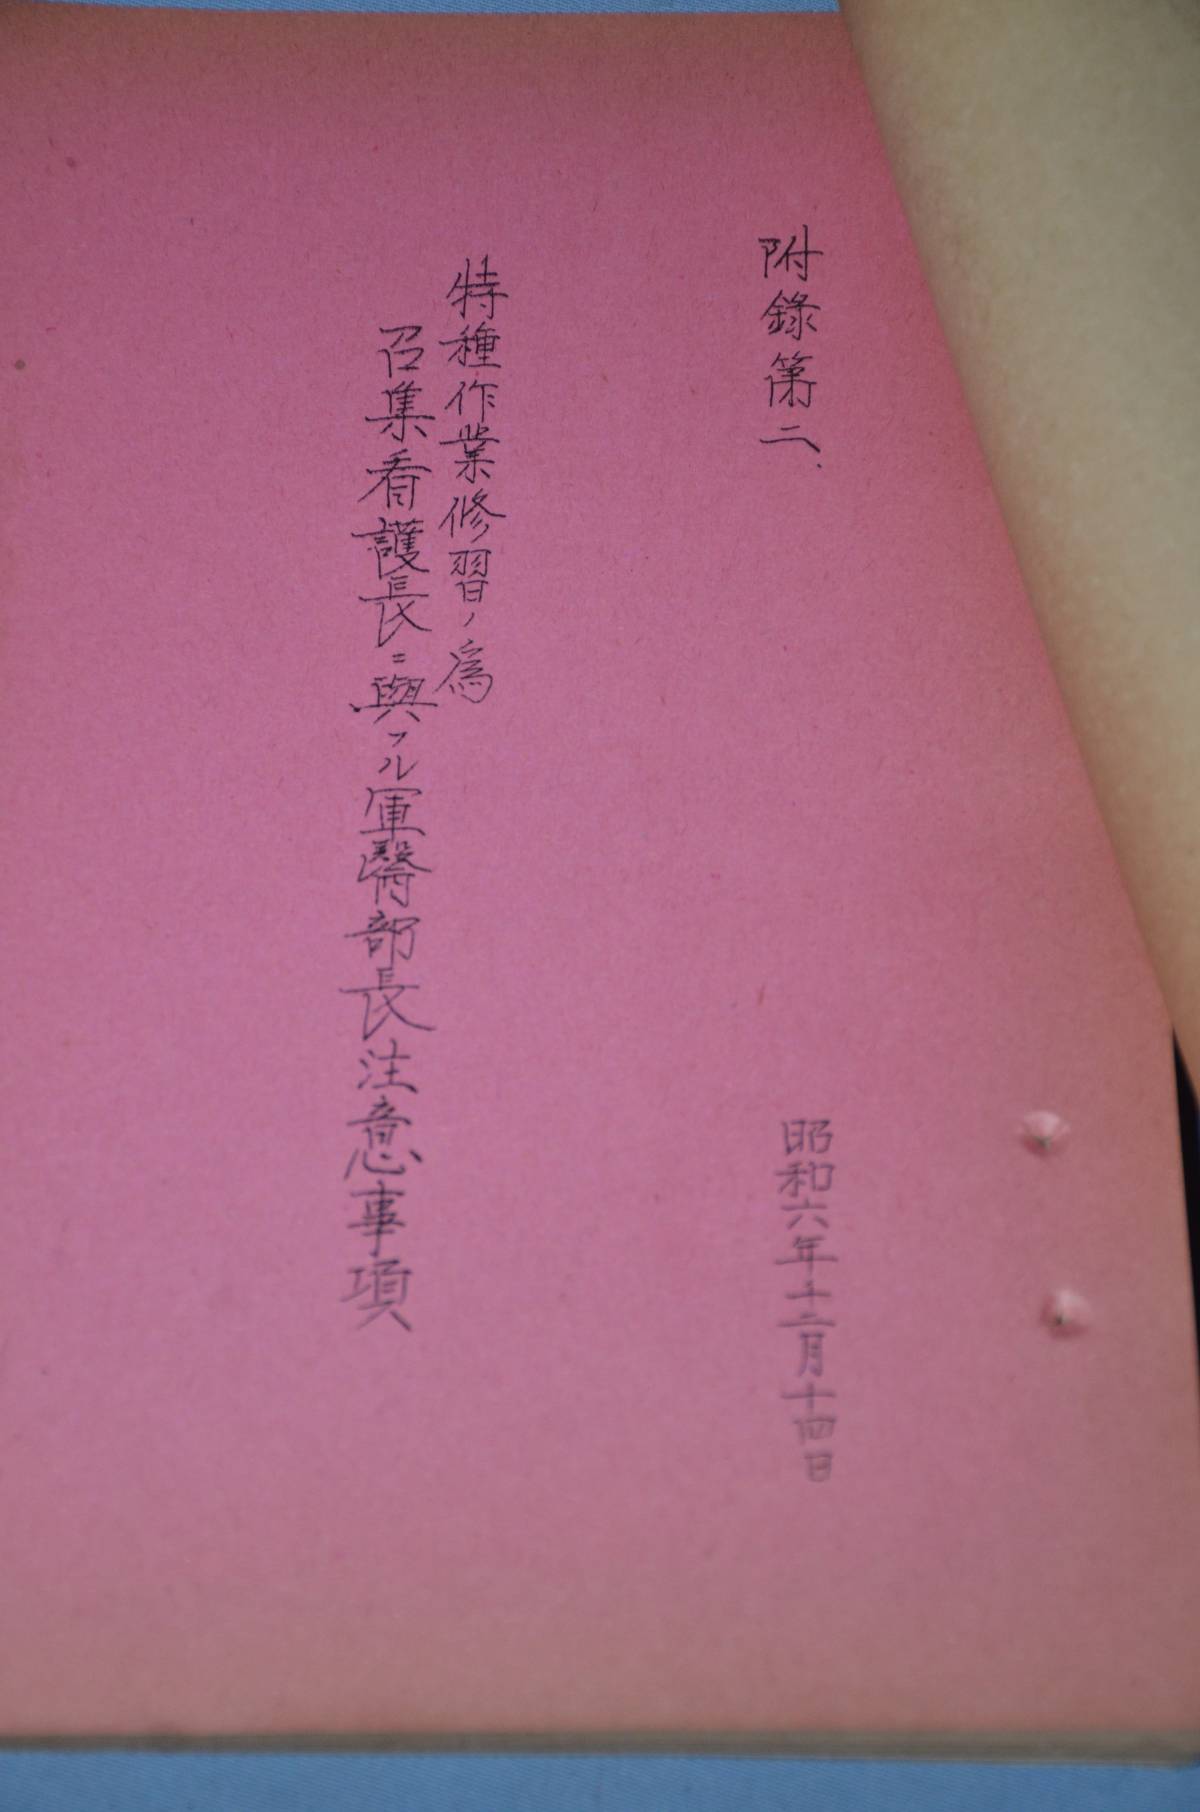 附錄第二、
昭和六年十二月十四日
特種作業修習ノ為
召集看護長ニ與フル軍醫部長注意事項